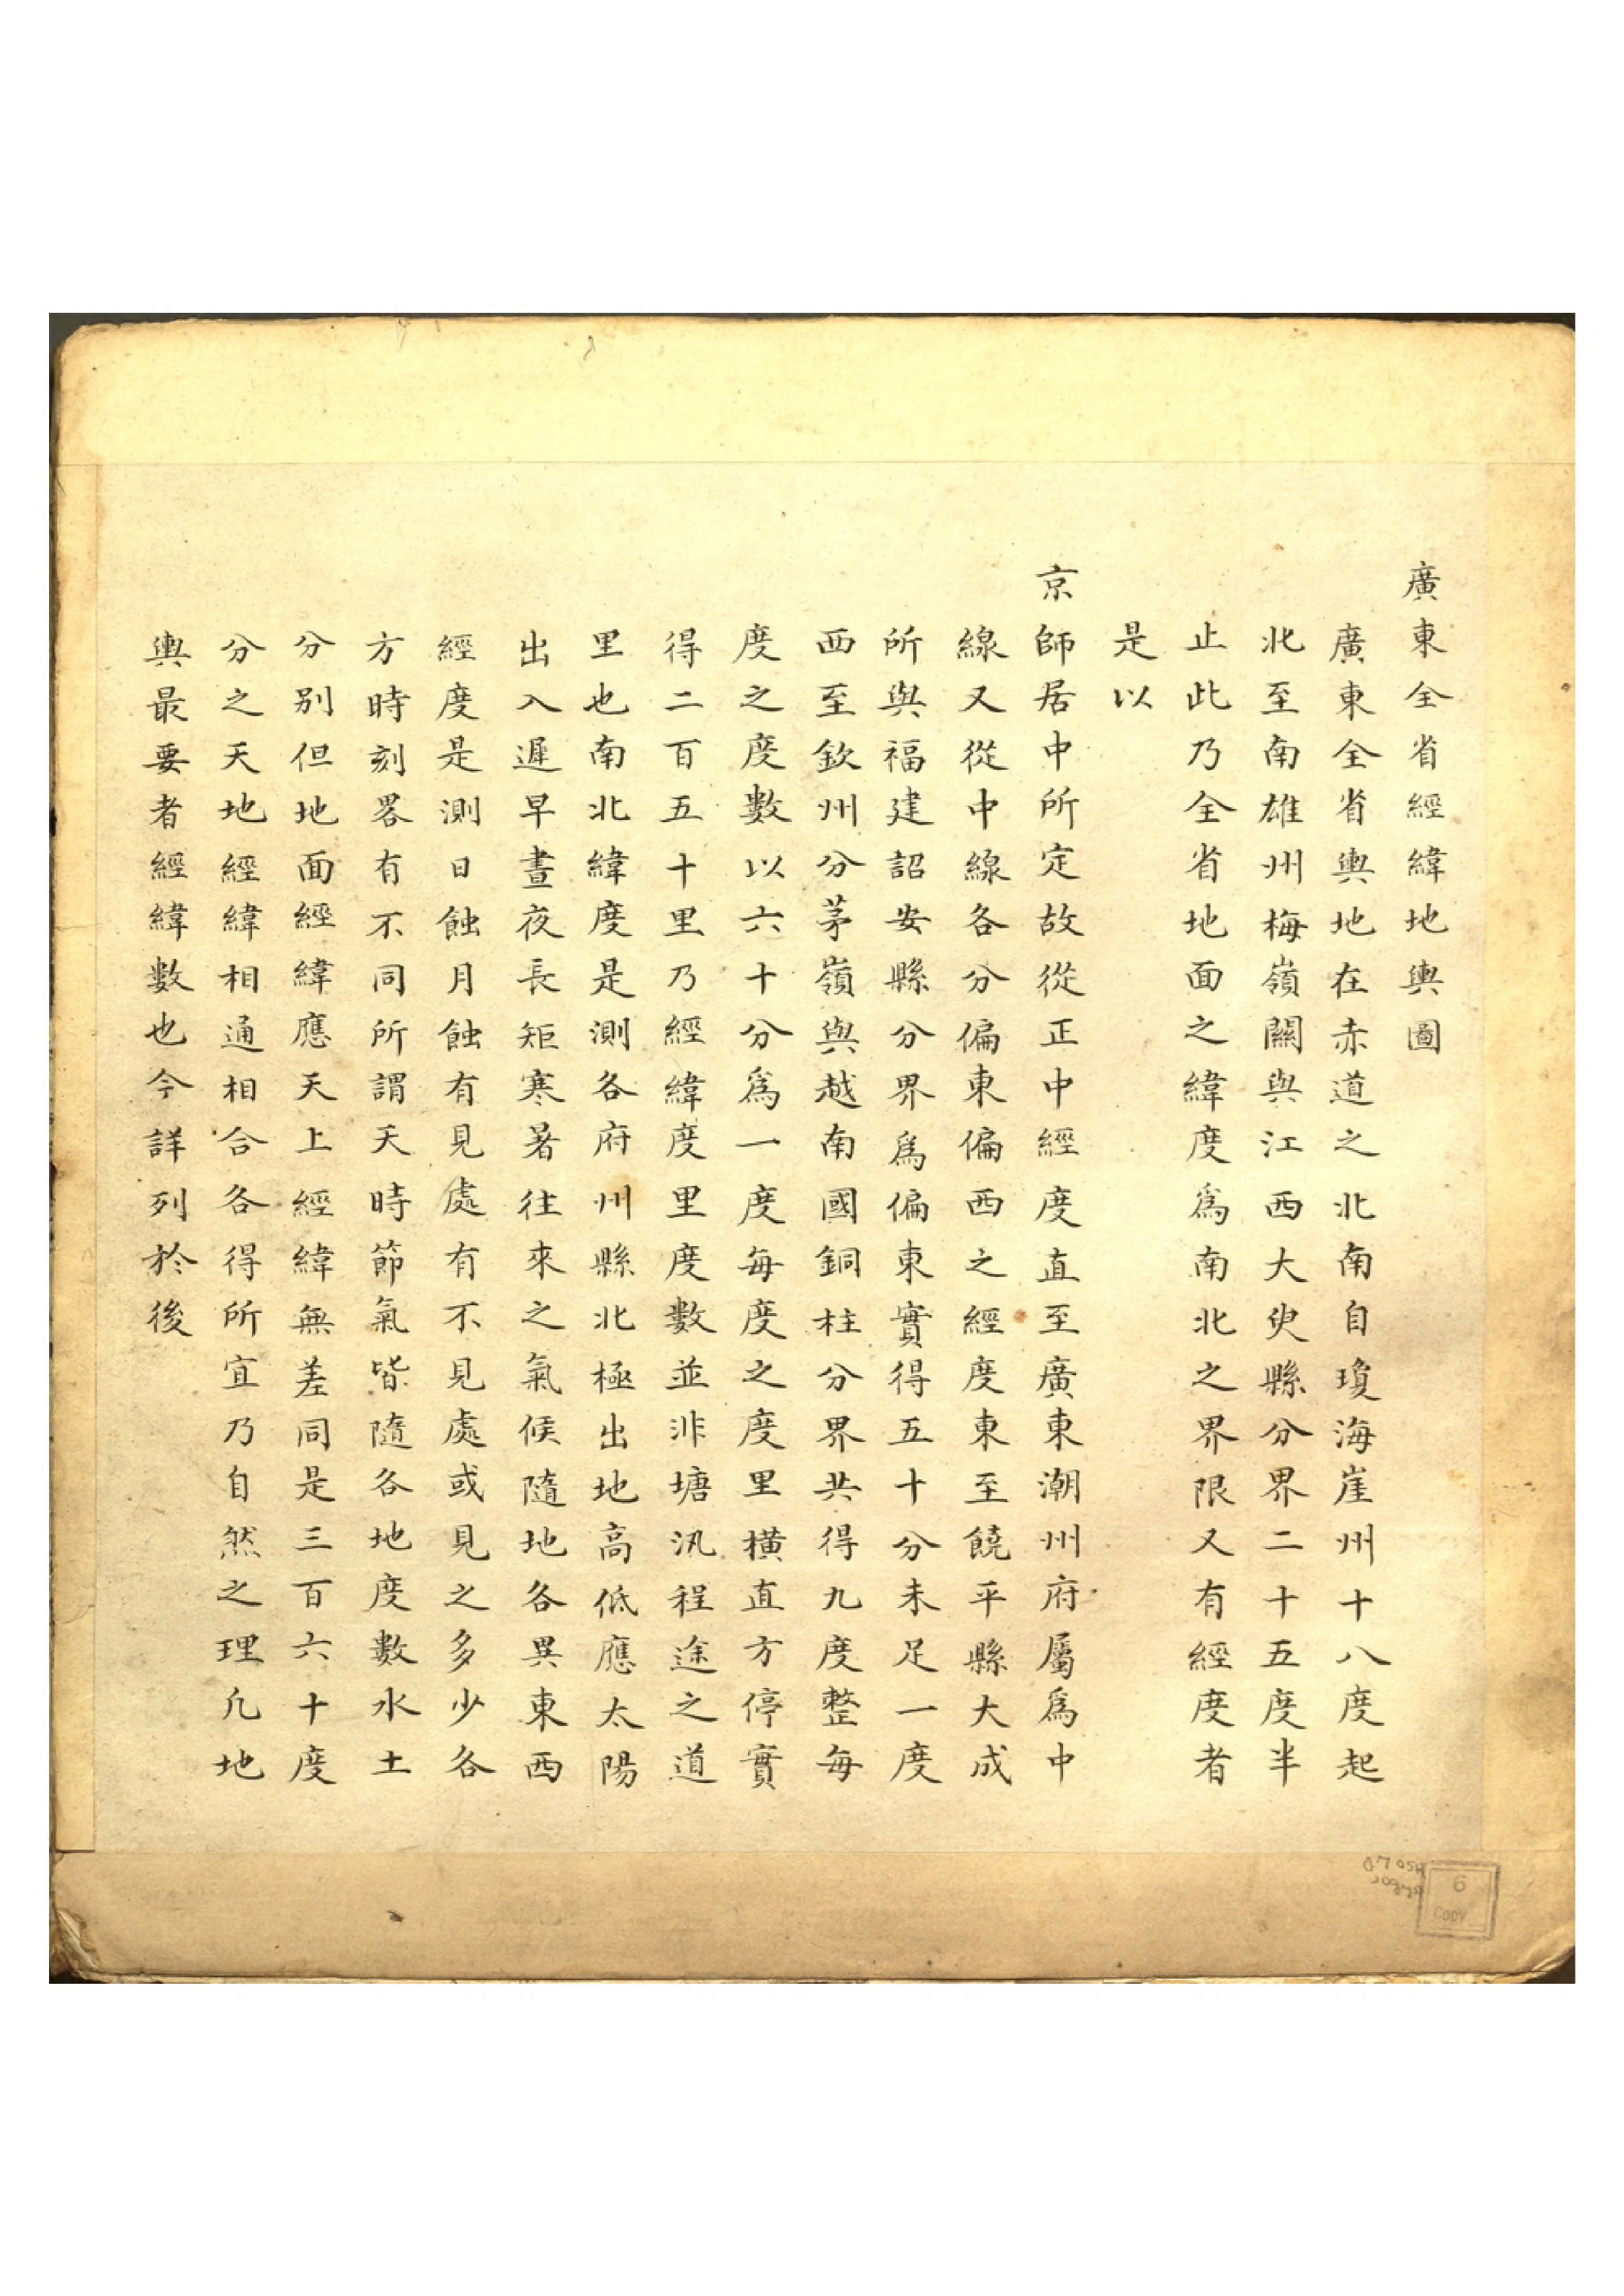 廣東全省經緯地輿圖
廣東全省輿地在赤道之北南自瓊海崖州十八度起
北至南雄州梅嶺關與江西大臾縣分界二十五度半
止此乃全省地面之緯度爲南北之界限又有經度者
是以
京師居中所定故從正中經度直至廣東潮州府屬爲中
線又從中線各分偏東偏西之經度東至饒平縣大成
所與福建詔安縣分界爲偏東實得五十分未足一度
西至欽州分茅嶺與越南國銅柱分界共得九度整每
度之度數以六十分爲一度每度之度里橫直方停實
得二百五十里乃經緯度里度數並非塘汛程途之道
里也南北緯度是測各府州縣北極出地高低應太陽
出入遲早晝夜長矩寒暑往來之氣候隨地各異東西
經度是測日蝕月蝕有見處有不見處或見之多少各
方時刻畧有不同所謂天時節氣皆隨各地度數水土
分別但地面經緯應天上經緯無差同是三百六十度
分之天地經緯相通相合各得所宜乃自然之理凡地
輿最要者經緯數也今詳列於後
6
COPY